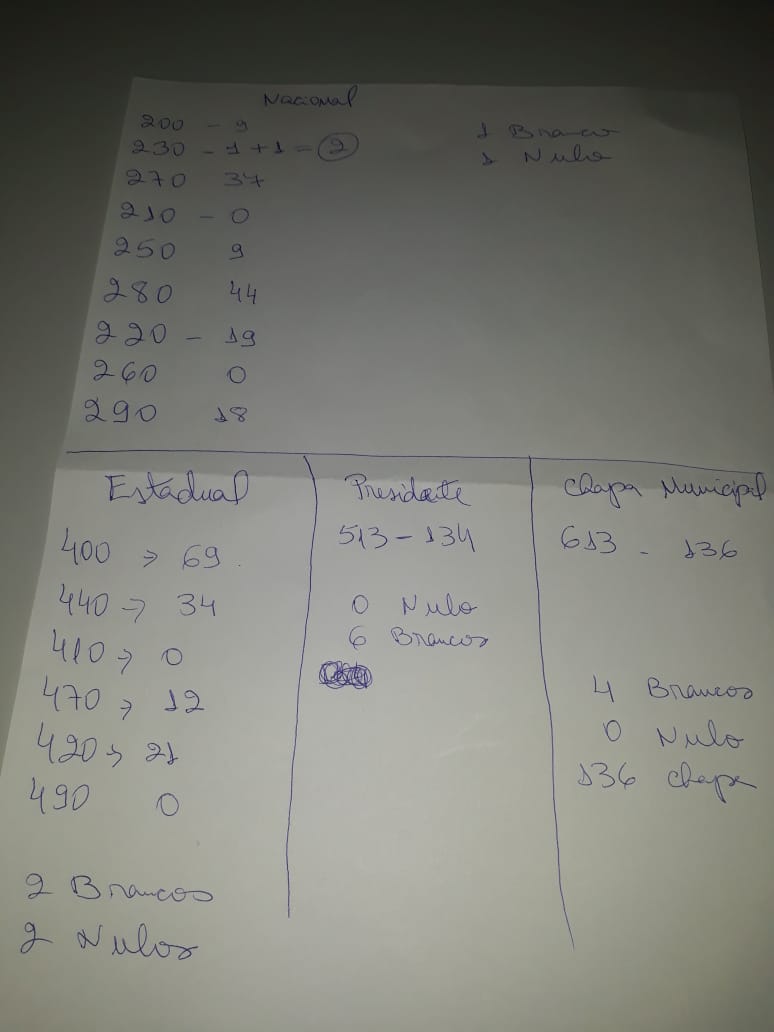 Nacional
200 - 9
230 - 1 + 1 = 2
270 37
210 - 0
250 9
280 44
220 - 19
260 0
290 18
1 Branco
1 Nulo
Estadual
400 → 69
440 → 34
410 → 0
470 → 12
420 → 21
490 0
2 Brancos
2 Nulos
Presidente
513 - 134
0 Nulo
6 Brancos
Chapa Municipal
613 - 136
4 Brancos
0 Nulo
136 Chapa